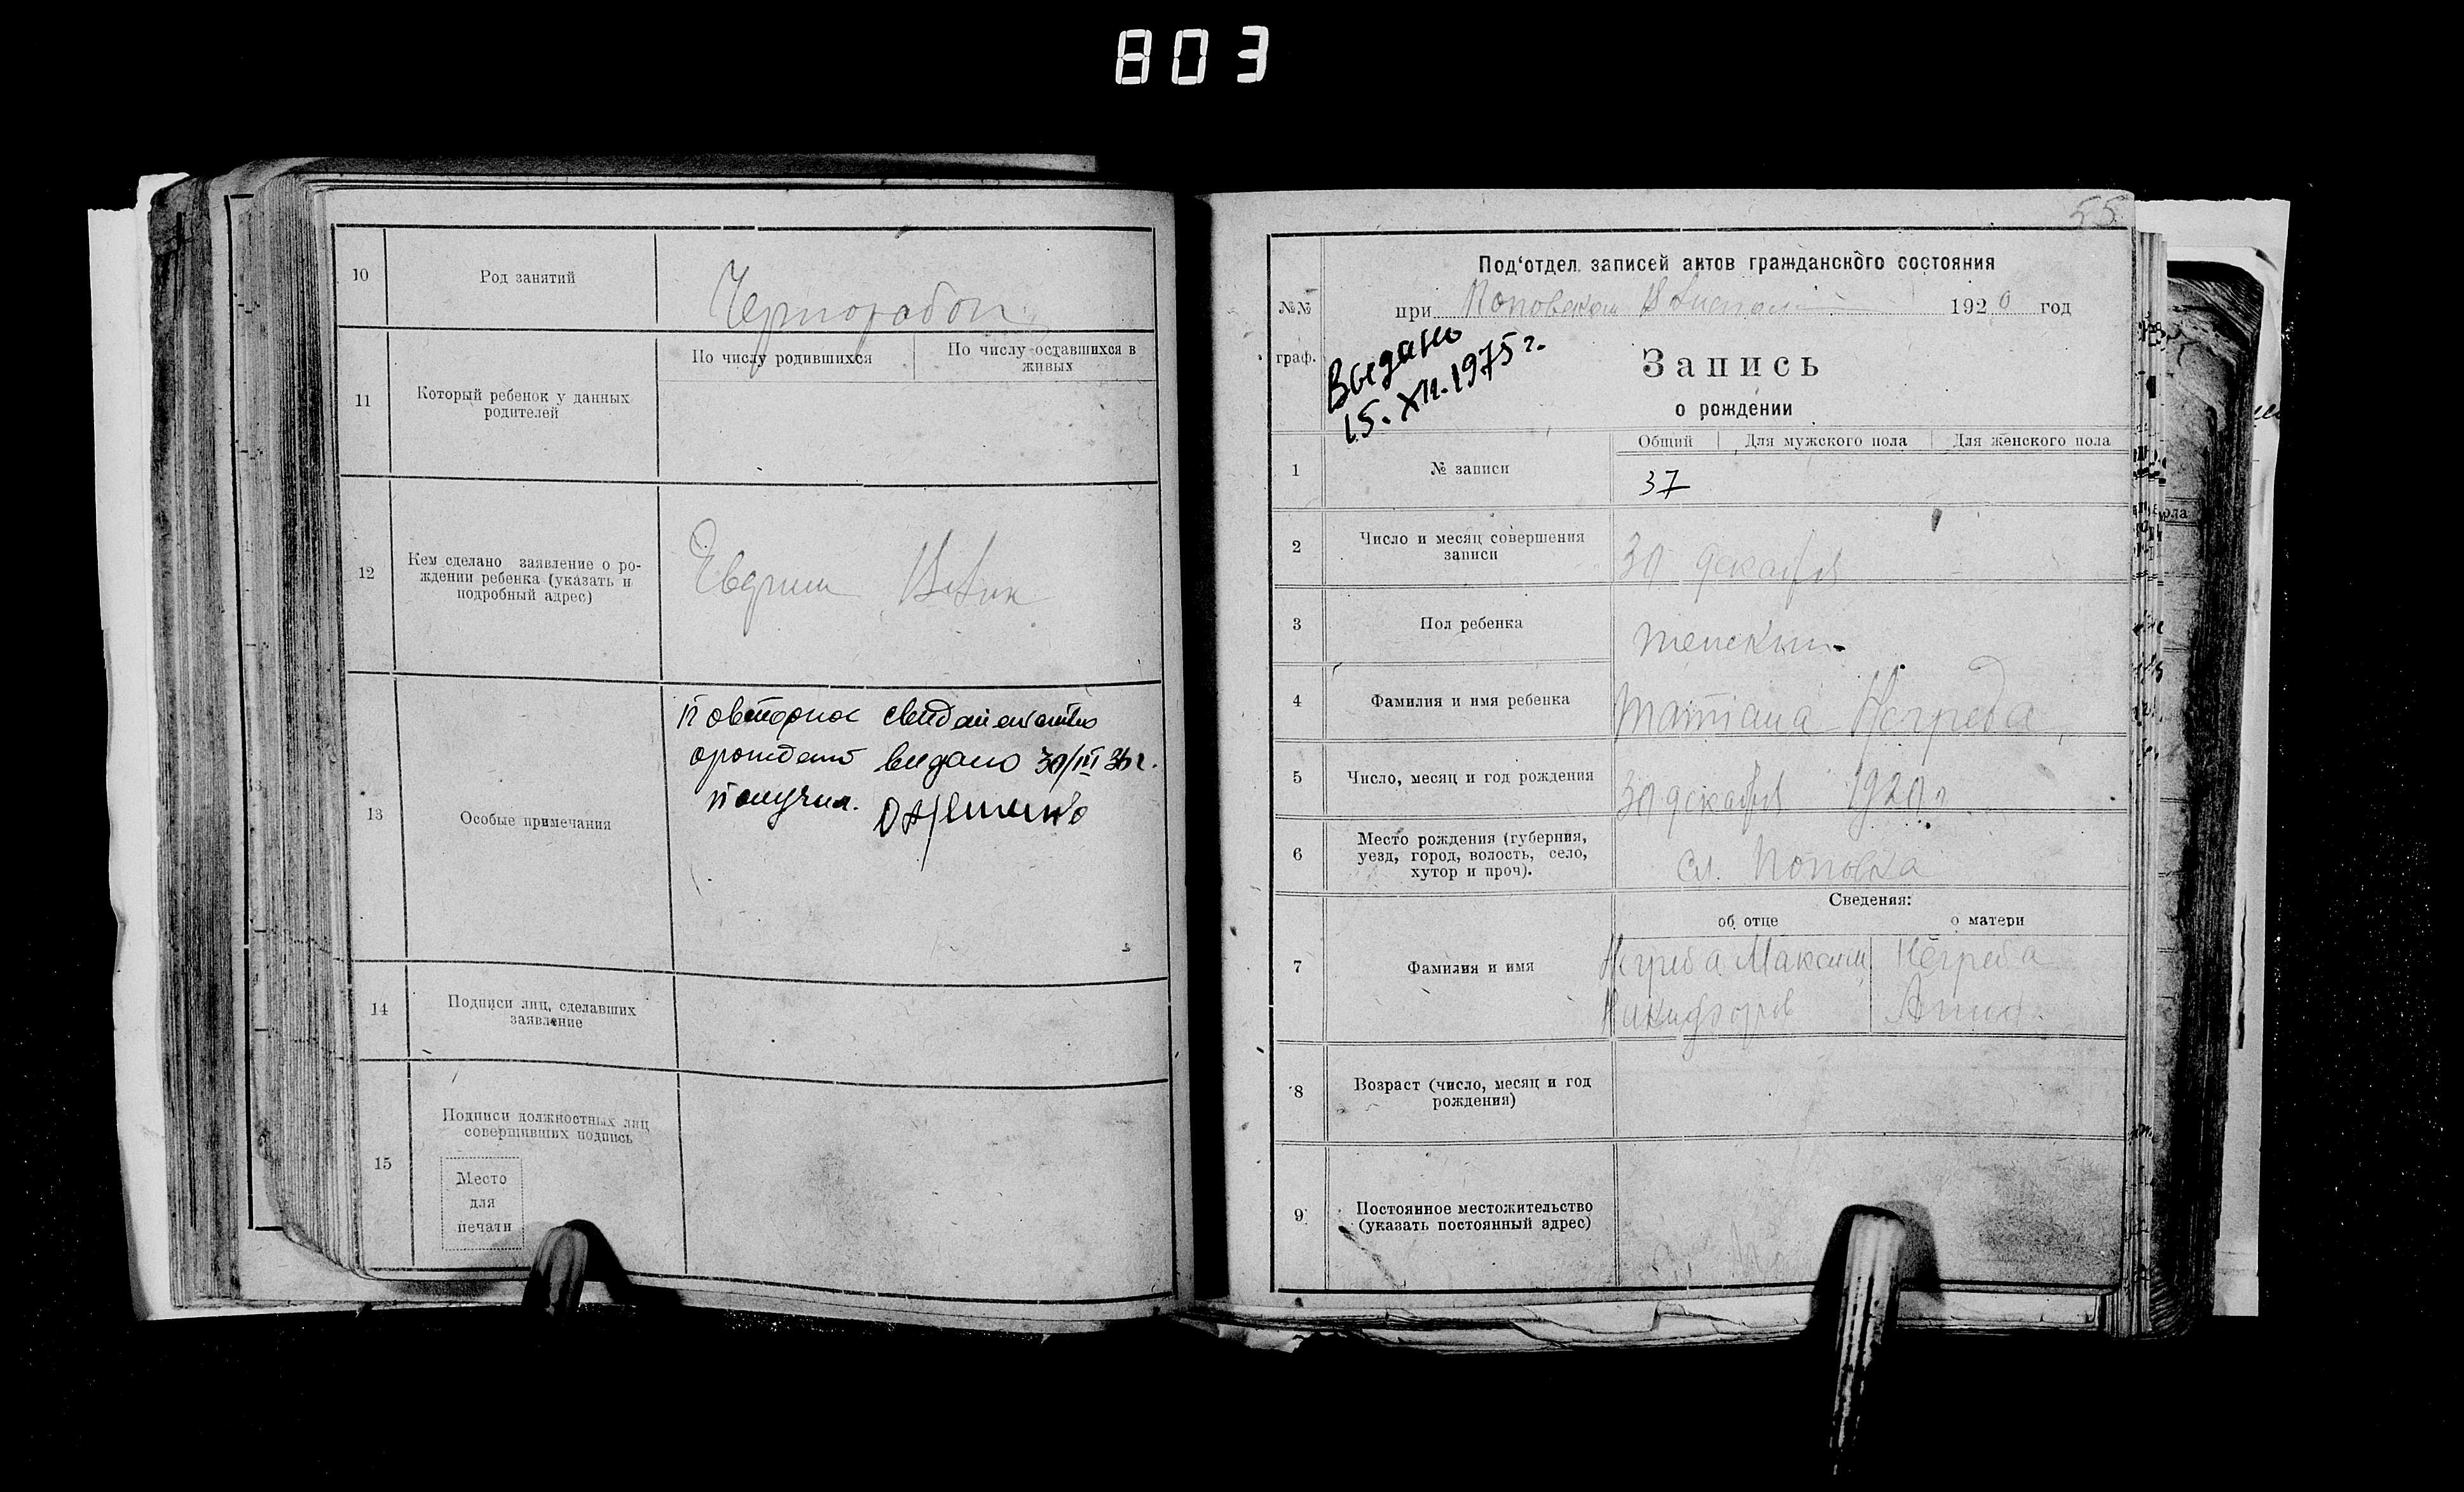 803
10
Род занятий
Чернорабоч
11
Который ребенок у данных
родителей
По числу родившихся
По числу оставшихся в
живых
12
Кем сделано заявление о ро-
ждении ребенка (указать и
подробный адрес)
13
Особые примечания
Повторное свидетельство
орождени видано 30/III 36 г.
Получил.
14
Подписи лиц, сделавших
заявление
15
Подписи должностных лиц
совершивших подпись
Место
для
печати
55
№№
граф.
Под‘отдел записей актов гражданского состояния
при Поповском 1920 год
Выдано
15. XII. 1975 г.
Запись
о рождении
1
№ записи
Общий
Для мужского пола
Для женского пола
37
2
Число и месяц совершения
записи
30 декабря
3
Пол ребенка
женский
4
Фамилия и имя ребенка
Татiана Негреба
5
Число, месяц и год рождения
30 декабря 1920 г
6
Место рождения (губерния,
уезд, город, волость, село,
хутор и проч).
сл. Поповка
Сведения:
об отце
о матери
7
Фамилия и имя
Негреба Максим
Никифоров
Негреба
Анна
8
Возраст (число, месяц и год
рождения)
9
Постоянное местожительство
(указать постоянный адрес)